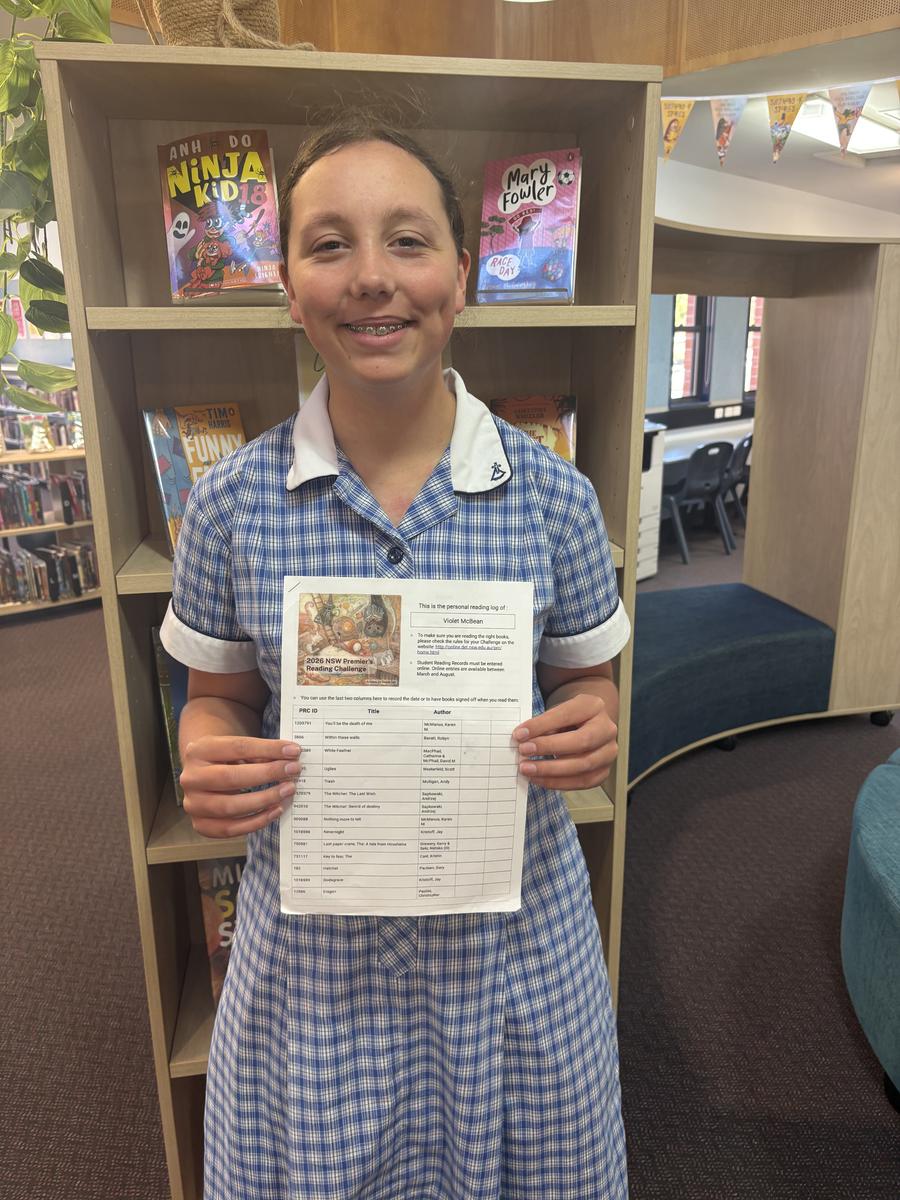 ANH DO
NINJA
KID 18
NINJA
Mary
Fowler
GO BEE!
RACE
DAY
TIM
HARRIS
FUNNY
This is the personal reading log of :
Violet McBean
2026 NSW Premier's
Reading Challenge
To make sure you are reading the right books,
please check the rules for your Challenge on the
website http://online.det.nsw.edu.au/prc/
home.html
Student Reading Records must be entered
online. Online entries are available between
March and August.
You can use the last two columns here to record the date or to have books signed off when you read them.
PRC ID Title Author
1200791 You'll be the death of me McManus, Karen
M
Within these walls Bavati, Robyn
White Feather MacPhail,
Catherine &
McPhail, David M
Uglies Westerfeld, Scott
Trash Mulligan, Andy
The Witcher: The Last Wish Sapkowski,
Andrzej
The Witcher: Sword of destiny Sapkowski,
Andrzej
Nothing more to tell McManus, Karen
M
Nevernight Kristoff, Jay
Last paper crane, The: A tale from Hiroshima Drewery, Kerry &
731117 Key to fear, The Cast, Kristin
Hatchet Paulsen, Gary
Godsgrave Kristoff, Jay
Eragon Paolini,
Christopher